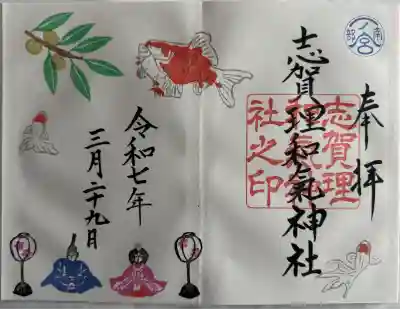 奉拝
南部
一ノ宮
志賀理和氣神社
志賀理
和氣神
社之印
令和七年
三月二十九日